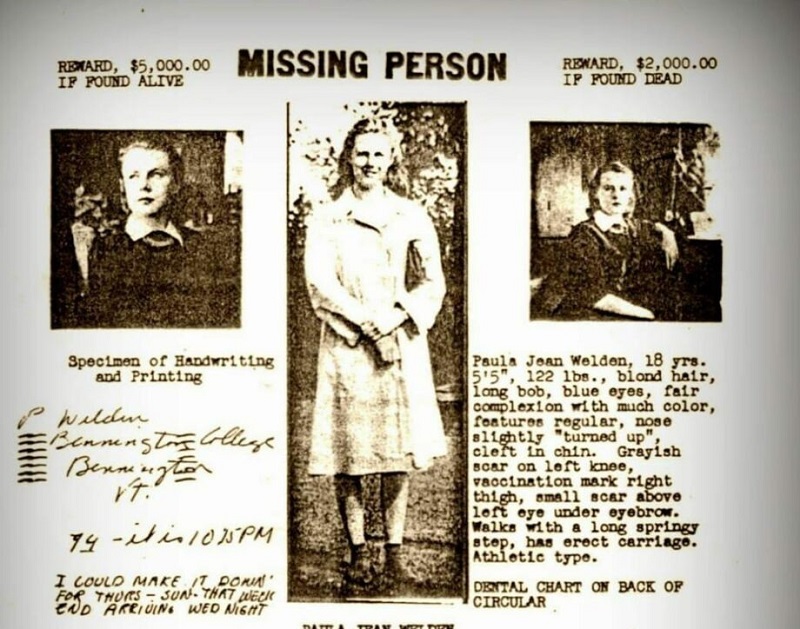 REWARD, $5,000.00
IF FOUND ALIVE
MISSING PERSON
REWARD, $2,000.00
IF FOUND DEAD
Specimen of Handwriting
and Printing
P Welden
Bennington College
Bennington
Vt.
- it is 10:15 PM
I COULD MAKE IT DOWN
FOR THURS - SUN. THAT WEEK
END ARRIVING WED NIGHT
Paula Jean Welden, 18 yrs.
5'5", 122 lbs., blond hair,
long bob, blue eyes, fair
complexion with much color,
features regular, nose
slightly "turned up",
cleft in chin. Grayish
scar on left knee,
vaccination mark right
thigh, small scar above
left eye under eyebrow.
Walks with a long springy
step, has erect carriage.
Athletic type.
DENTAL CHART ON BACK OF
CIRCULAR
PAULA JEAN WELDEN